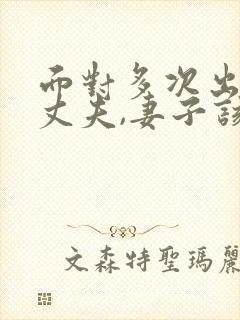 而對多次出
丈夫,妻子該
文森特聖瑪麗